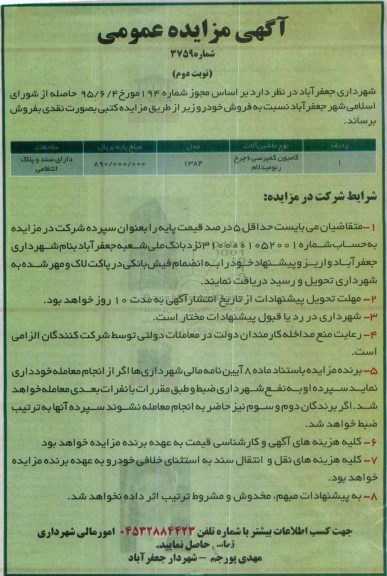 آگهی مزایده عمومی
شماره ۳۷۵۹
(نوبت دوم)
شهرداری جعفرآباد در نظر دارد بر اساس مجوز شماره ۱۹۴ مورخ ۹۵/۶/۴ حاصله از شورای
اسلامی شهر جعفرآباد نسبت به فروش خودرو زیر از طریق مزایده کتبی بصورت نقدی بفروش
برساند.
ردیف نوع ماشین آلات مدل مبلغ پایه بریال ملاحظات
۱ کامیون کمپرسی ۶چرخ رنو میدلام ۱۳۸۴ ۸۹۰/۰۰۰/۰۰۰ دارای سند و پلاک انتظامی
شرایط شرکت در مزایده:
۱- متقاضیان می بایست حداقل ۵ درصد قیمت پایه را بعنوان سپرده شرکت در مزایده
به حساب شماره ۳۱۰۰۰۰۱۰۵۲۰۰۱ نزد بانک ملی شعبه جعفرآباد بنام شهرداری
جعفرآباد واریز و پیشنهاد خود را به انضمام فیش بانکی در پاکت لاک و مهر شده به
شهرداری تحویل و رسید دریافت نمایند.
۲- مهلت تحویل پیشنهادات از تاریخ انتشار آگهی به مدت ۱۰ روز خواهد بود.
۳- شهرداری در رد یا قبول پیشنهادات مختار است.
۴- رعایت منع مداخله کارمندان دولت در معاملات دولتی توسط شرکت کنندگان الزامی
است.
۵- برنده مزایده باستناد ماده ۸ آیین نامه مالی شهرداری ها اگر از انجام معامله خودداری
نماید سپرده او به نفع شهرداری ضبط و طبق مقررات با نفرات بعدی معامله خواهد
شد. اگر برندگان دوم و سوم نیز حاضر به انجام معامله نشوند سپرده آنها به ترتیب
ضبط خواهد شد.
۶- کلیه هزینه های آگهی و کارشناسی قیمت به عهده برنده مزایده خواهد بود
۷- کلیه هزینه های نقل و انتقال سند به استثنای خلافی خودرو به عهده برنده مزایده
خواهد بود.
۸- به پیشنهادات مبهم، مخدوش و مشروط ترتیب اثر داده نخواهد شد.
جهت کسب اطلاعات بیشتر با شماره تلفن ۰۴۵۳۲۸۸۴۴۲۳ امور مالی شهرداری
تماس حاصل نمایید.
مهدی پورجم - شهردار جعفرآباد